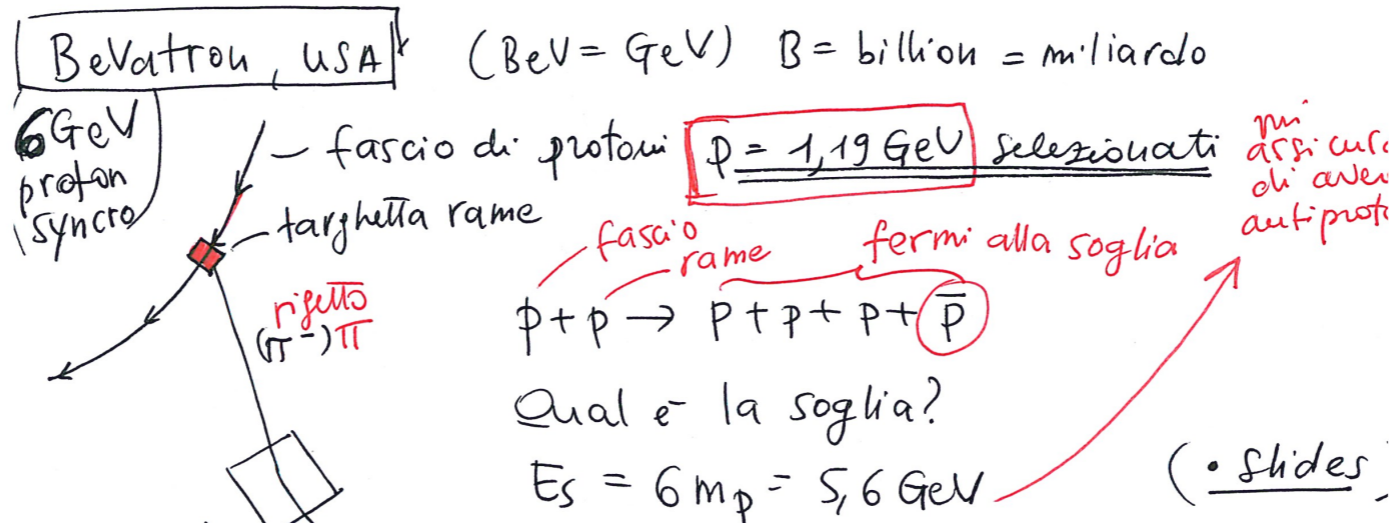 BeVatron, USA (BeV = GeV) B = billion = miliardo
6 GeV
proton
syncro
fascio di protoni p = 1,19 GeV selezionati
mi
assicuro
di aver
targhetta rame
fascio
rame
fermi alla soglia
rigetto
(π⁻) π
p + p → p + p + p + p̅
Qual è la soglia?
Es = 6 mp = 5,6 GeV
(• slides)